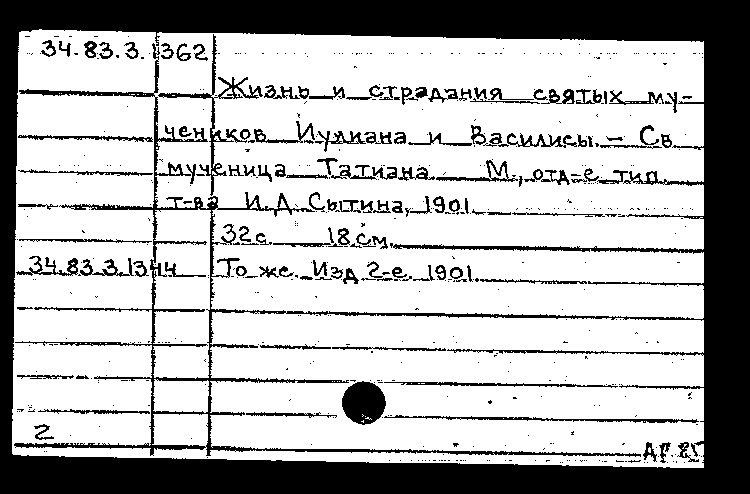 34.83.3.1362
Жизнь и страдания святых му-
чеников Иулиана и Василисы. – Св.
мученица Татиана. М., отд-е тип.
т-ва И.Д. Сытина, 1901.
32 с. 18 см.
34.83.3.1344 То же. Изд. 2-е. 1901.
2